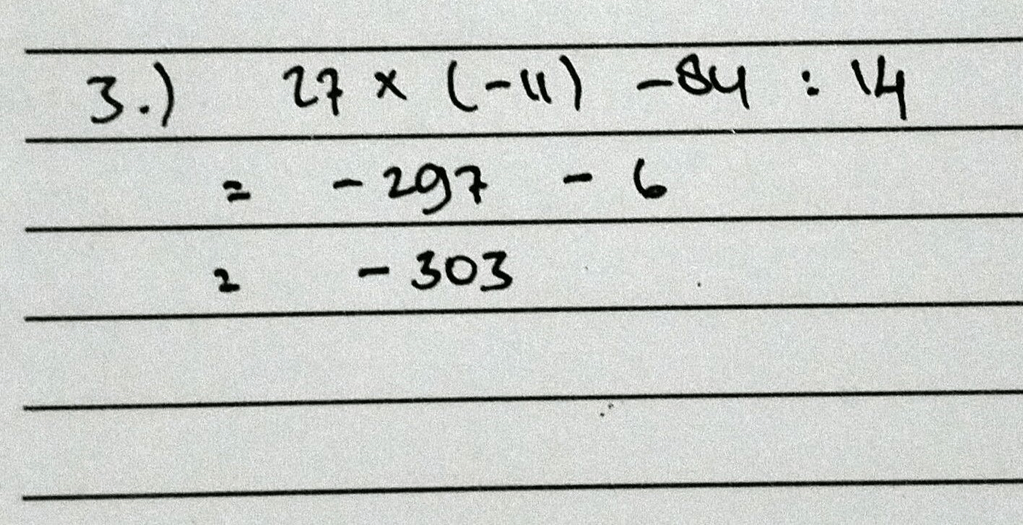 3.) 27 × (-11) -84 : 14
= -297 - 6
= -303